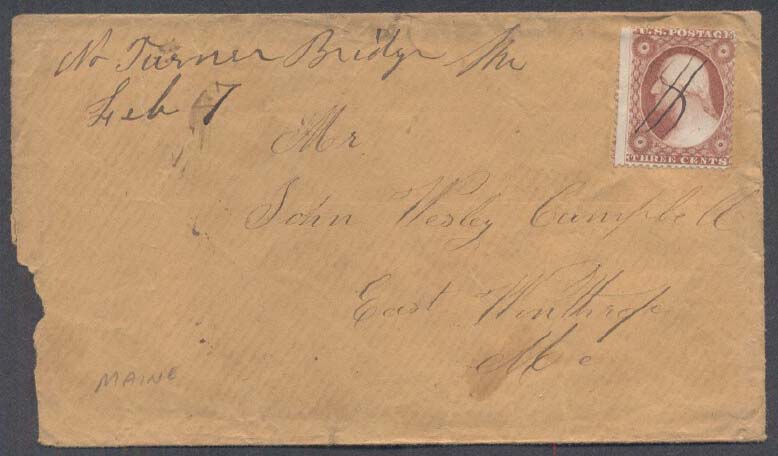 No Turner Bridge Me
Feb 7
U.S. POSTAGE
THREE CENTS
Mr
John Wesley Campbell
East Winthrop
Me
MAINE